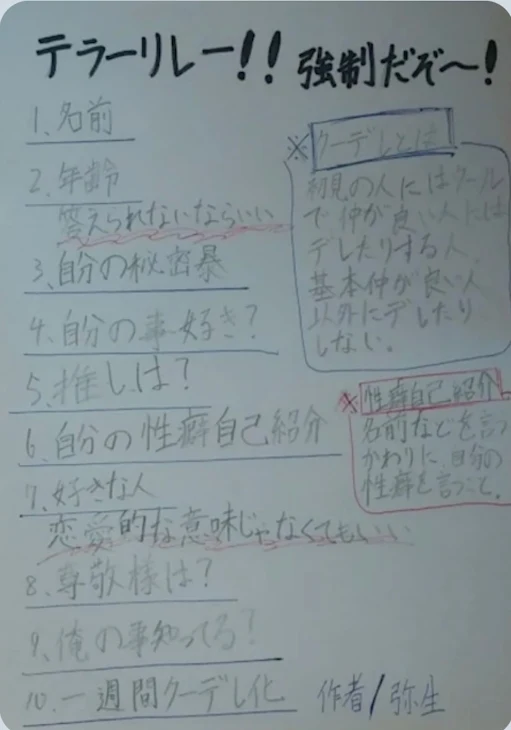 テラーリレー!! 強制だぞ〜!
1.名前
2.年齢
答えられないならいい
3.自分の秘密暴
4.自分の事好き?
5.推しは?
6.自分の性癖自己紹介
7.好きな人
恋愛的な意味じゃなくてもいい
8.尊敬様は?
9.俺の事知ってる?
10.一週間クーデレ化
作者/弥生
※クーデレとは
初見の人にはクール
で仲が良い人には
デレしたりする人。
基本仲が良い人
以外にデレしたり
しない。
※性癖自己紹介
名前などを言う
かわりに、自分の
性癖を言うこと。